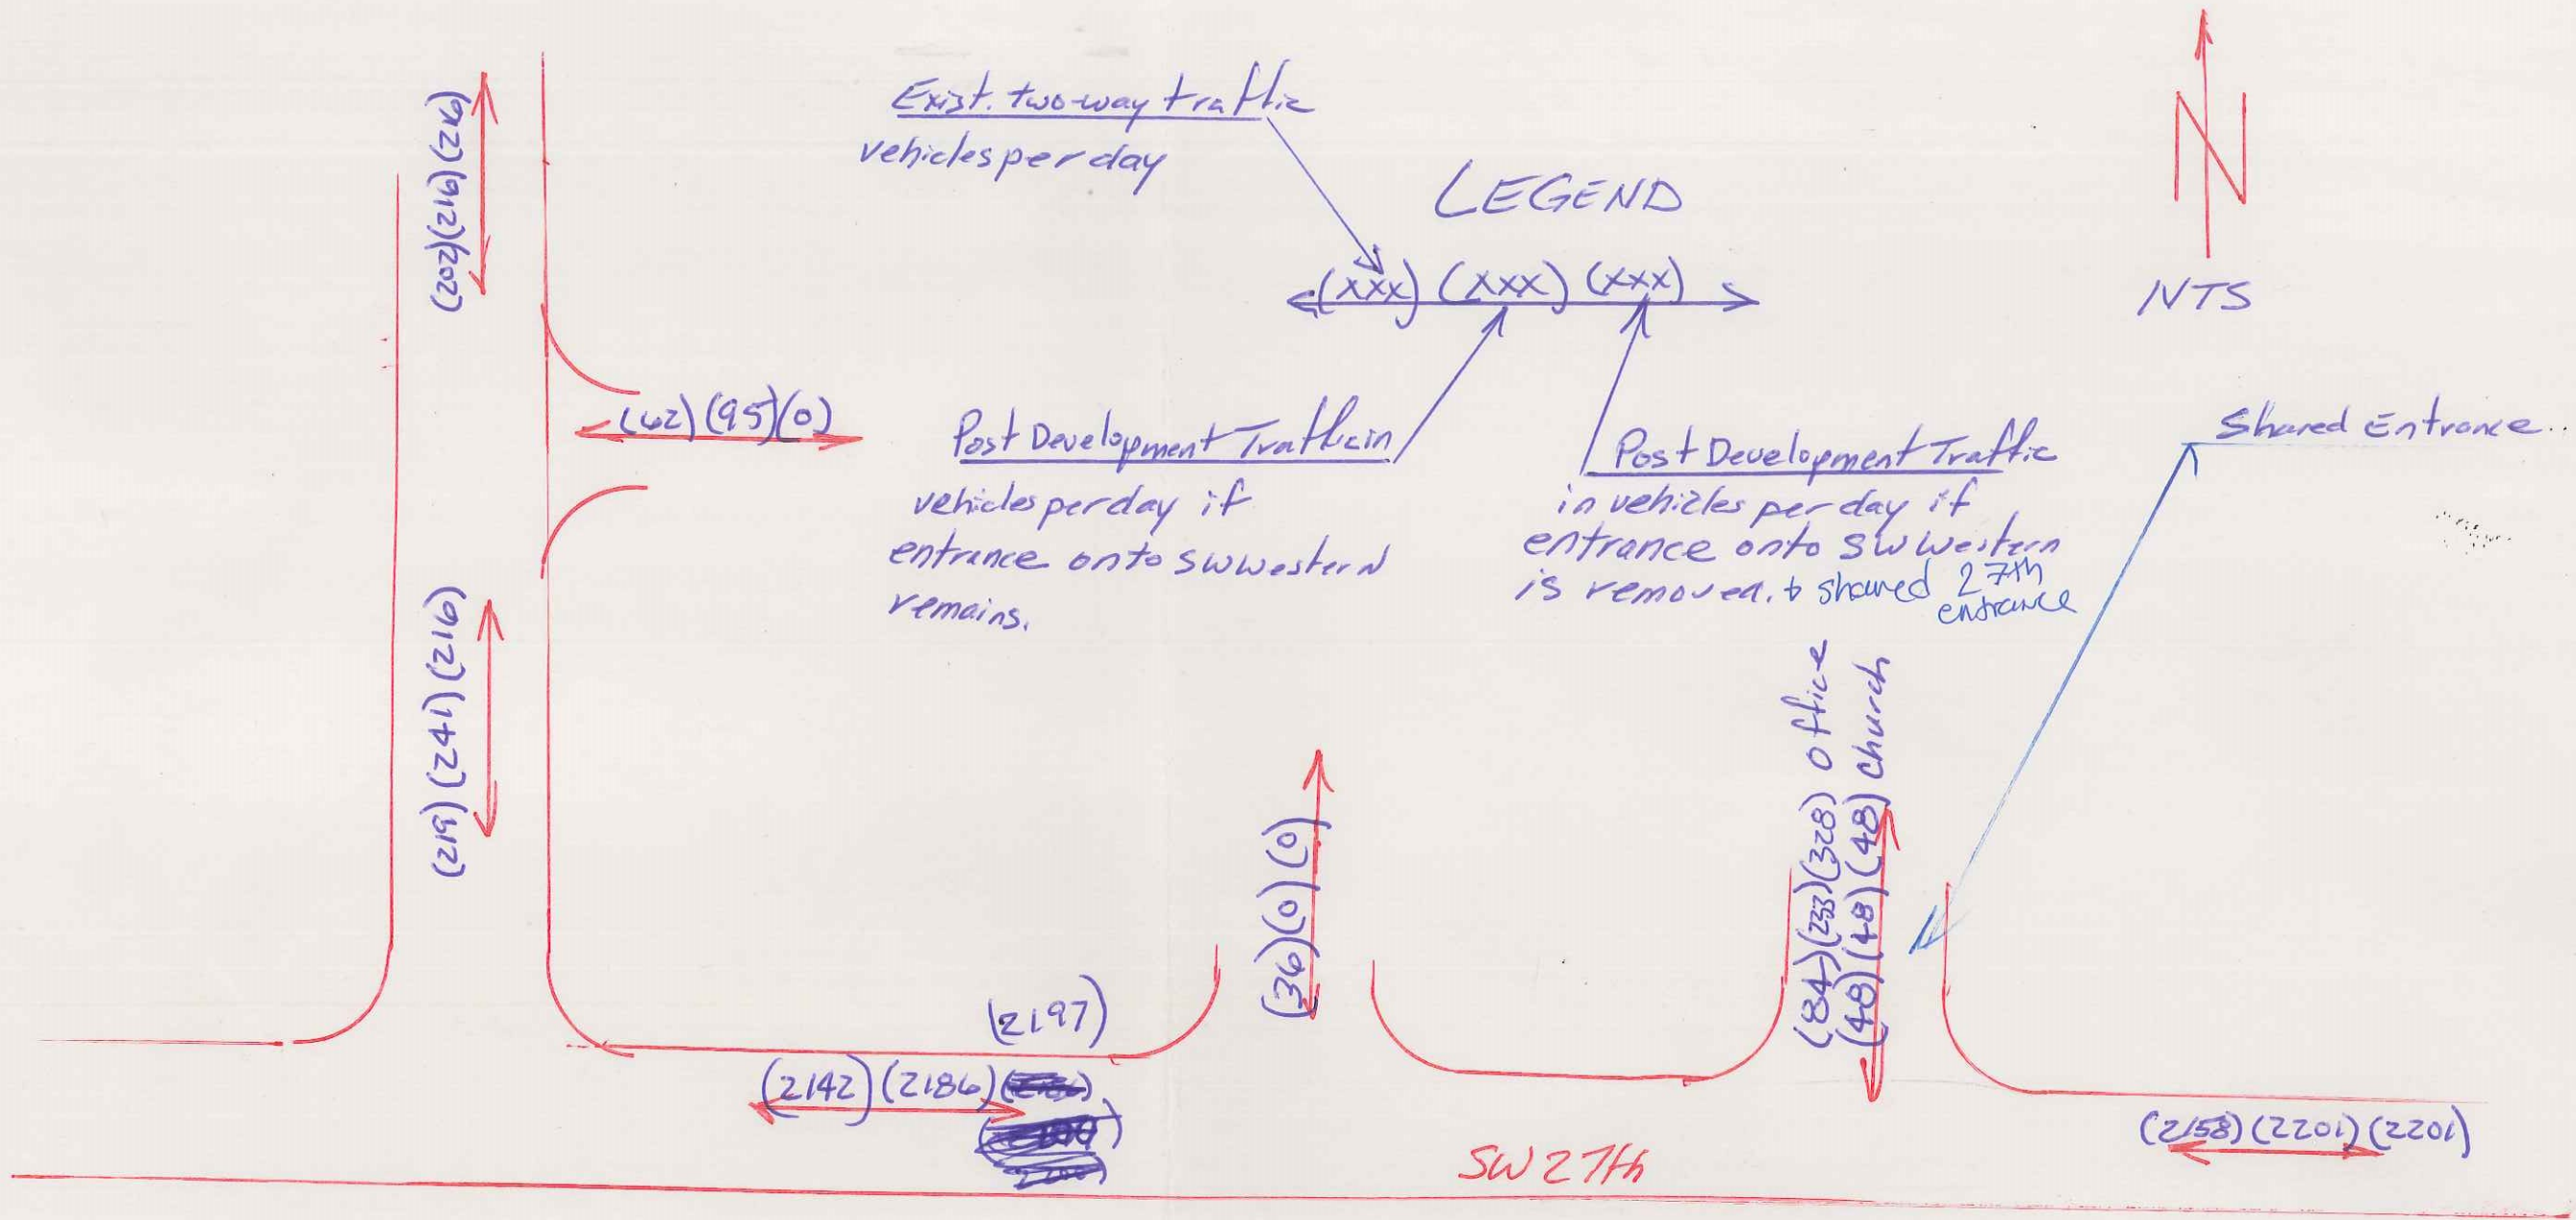 Exist. two-way traffic
vehicles per day
LEGEND
(xxx) (xxx) (xxx)
N
NTS
(202)(216)(216)
(62)(95)(0)
Post Development Traffic in
vehicles per day if
entrance onto SW Western
remains.
Post Development Traffic
in vehicles per day if
entrance onto SW Western
is removed. & shared 27th
entrance
Shared Entrance
(219)(241)(216)
(36)(0)(0)
(84)(233)(328) Office
(48)(48)(48) church
(2197)
(2142)(2186)
(2158)(2201)(2201)
SW 27th